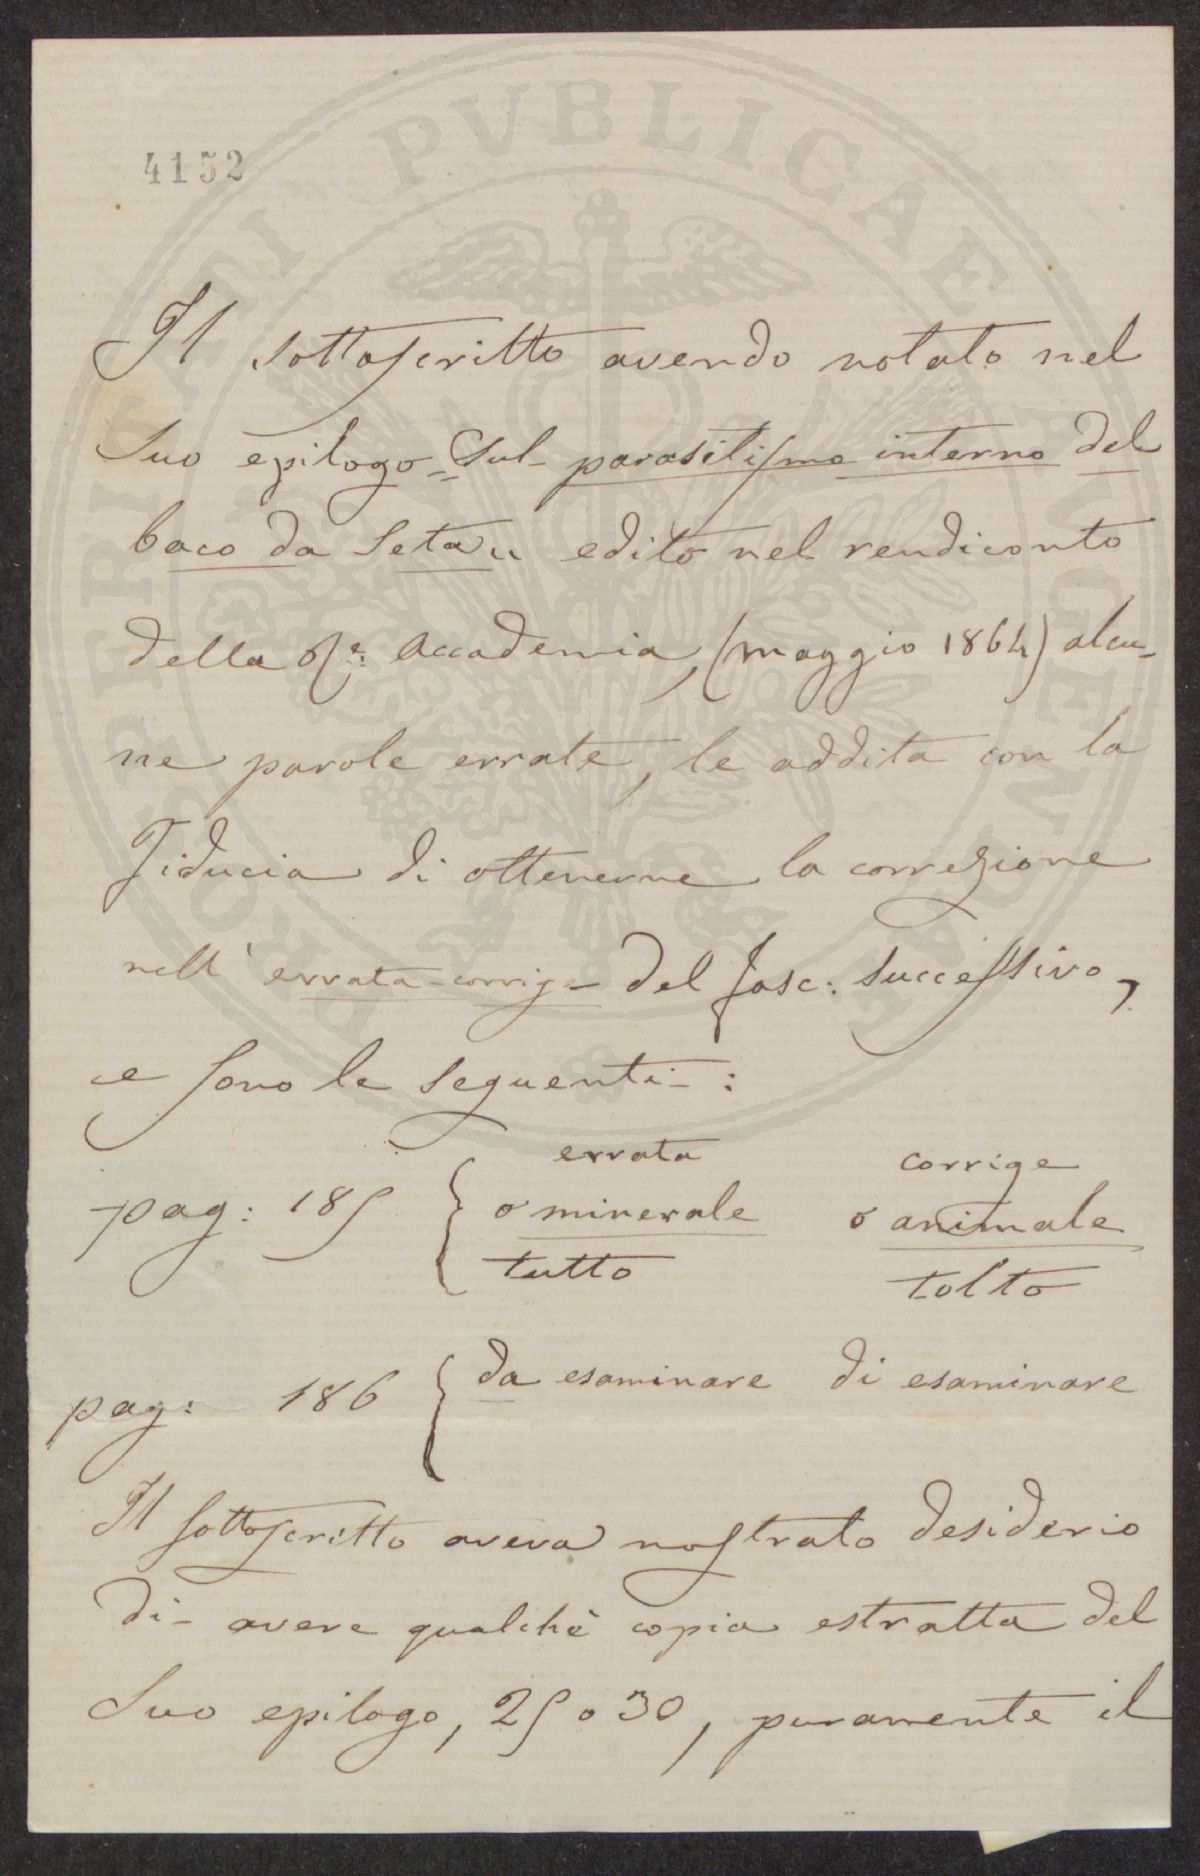 4152
Il sottoscritto avendo notato nel
suo epilogo „Sul parasitismo interno del
baco da seta„ edito nel rendiconto
della Re: Accademia, (maggio 1864) alcu-
ne parole errate, le addita con la
fiducia di ottenerne la correzione
nell' errata-corrige del fasc: successivo,
e sono le seguenti:
errata corrige
pag: 185 { o minerale o animale
tutto tolto
pag: 186 { da esaminare di esaminare
Il sottoscritto aveva mostrato desiderio
di avere qualchè copia estratta del
suo epilogo, 25 o 30, puramente il
PROSPERITATI PVBLICAE AVGENDAE